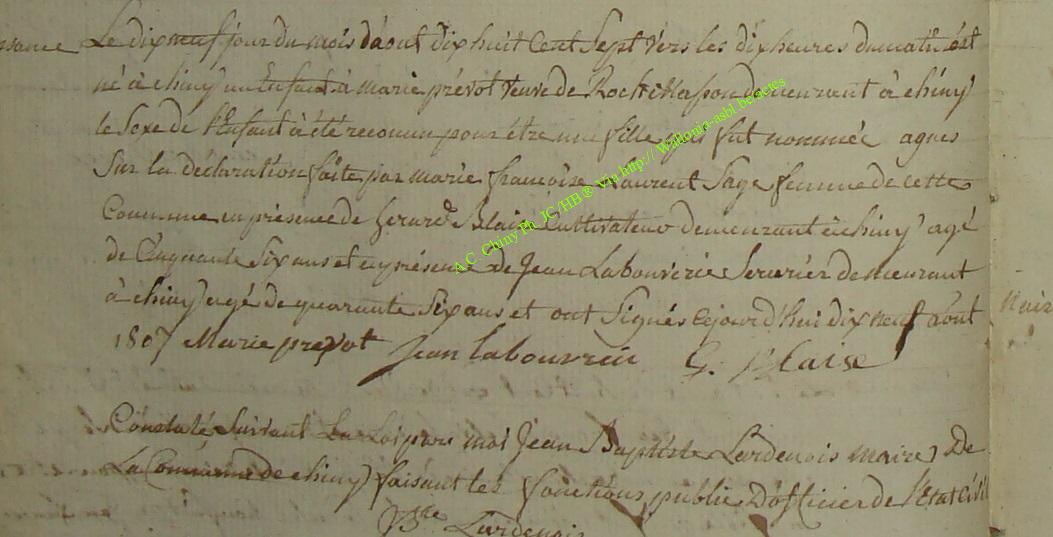 Le dix neuf jour du mois d'aout dix huit Cent Sept vers les dix heures du matin est
né à chiny un Enfant à marie prévot veuve de Roch demeurant à chiny
le Sexe de l'Enfant à été reconnu pour être une fille qui fut nommée agnes
Sur la déclaration faite par marie françoise Laurent Sage femme de cette
Commune en présence de Gerard Blaise Cultivateur demeurant à chiny agé
de Cinquante Six ans et en présence de Jean Labouverie Serurier demeurant
à chiny agé de quarante Six ans et ont Signés cejourd'hui dix neuf aout
1807 Marie prevot Jean labouverie G. Blaise
Constaté Suivant La Loi par moi Jean Baptiste Lardenois maire De
La Commune de chiny faisant les fonctions public D'officier de l'Etat Civil
Bte Lardenois
A.C. Chiny Ph. JC/HB ® Via http:// Wallonia-asbl.be/actes